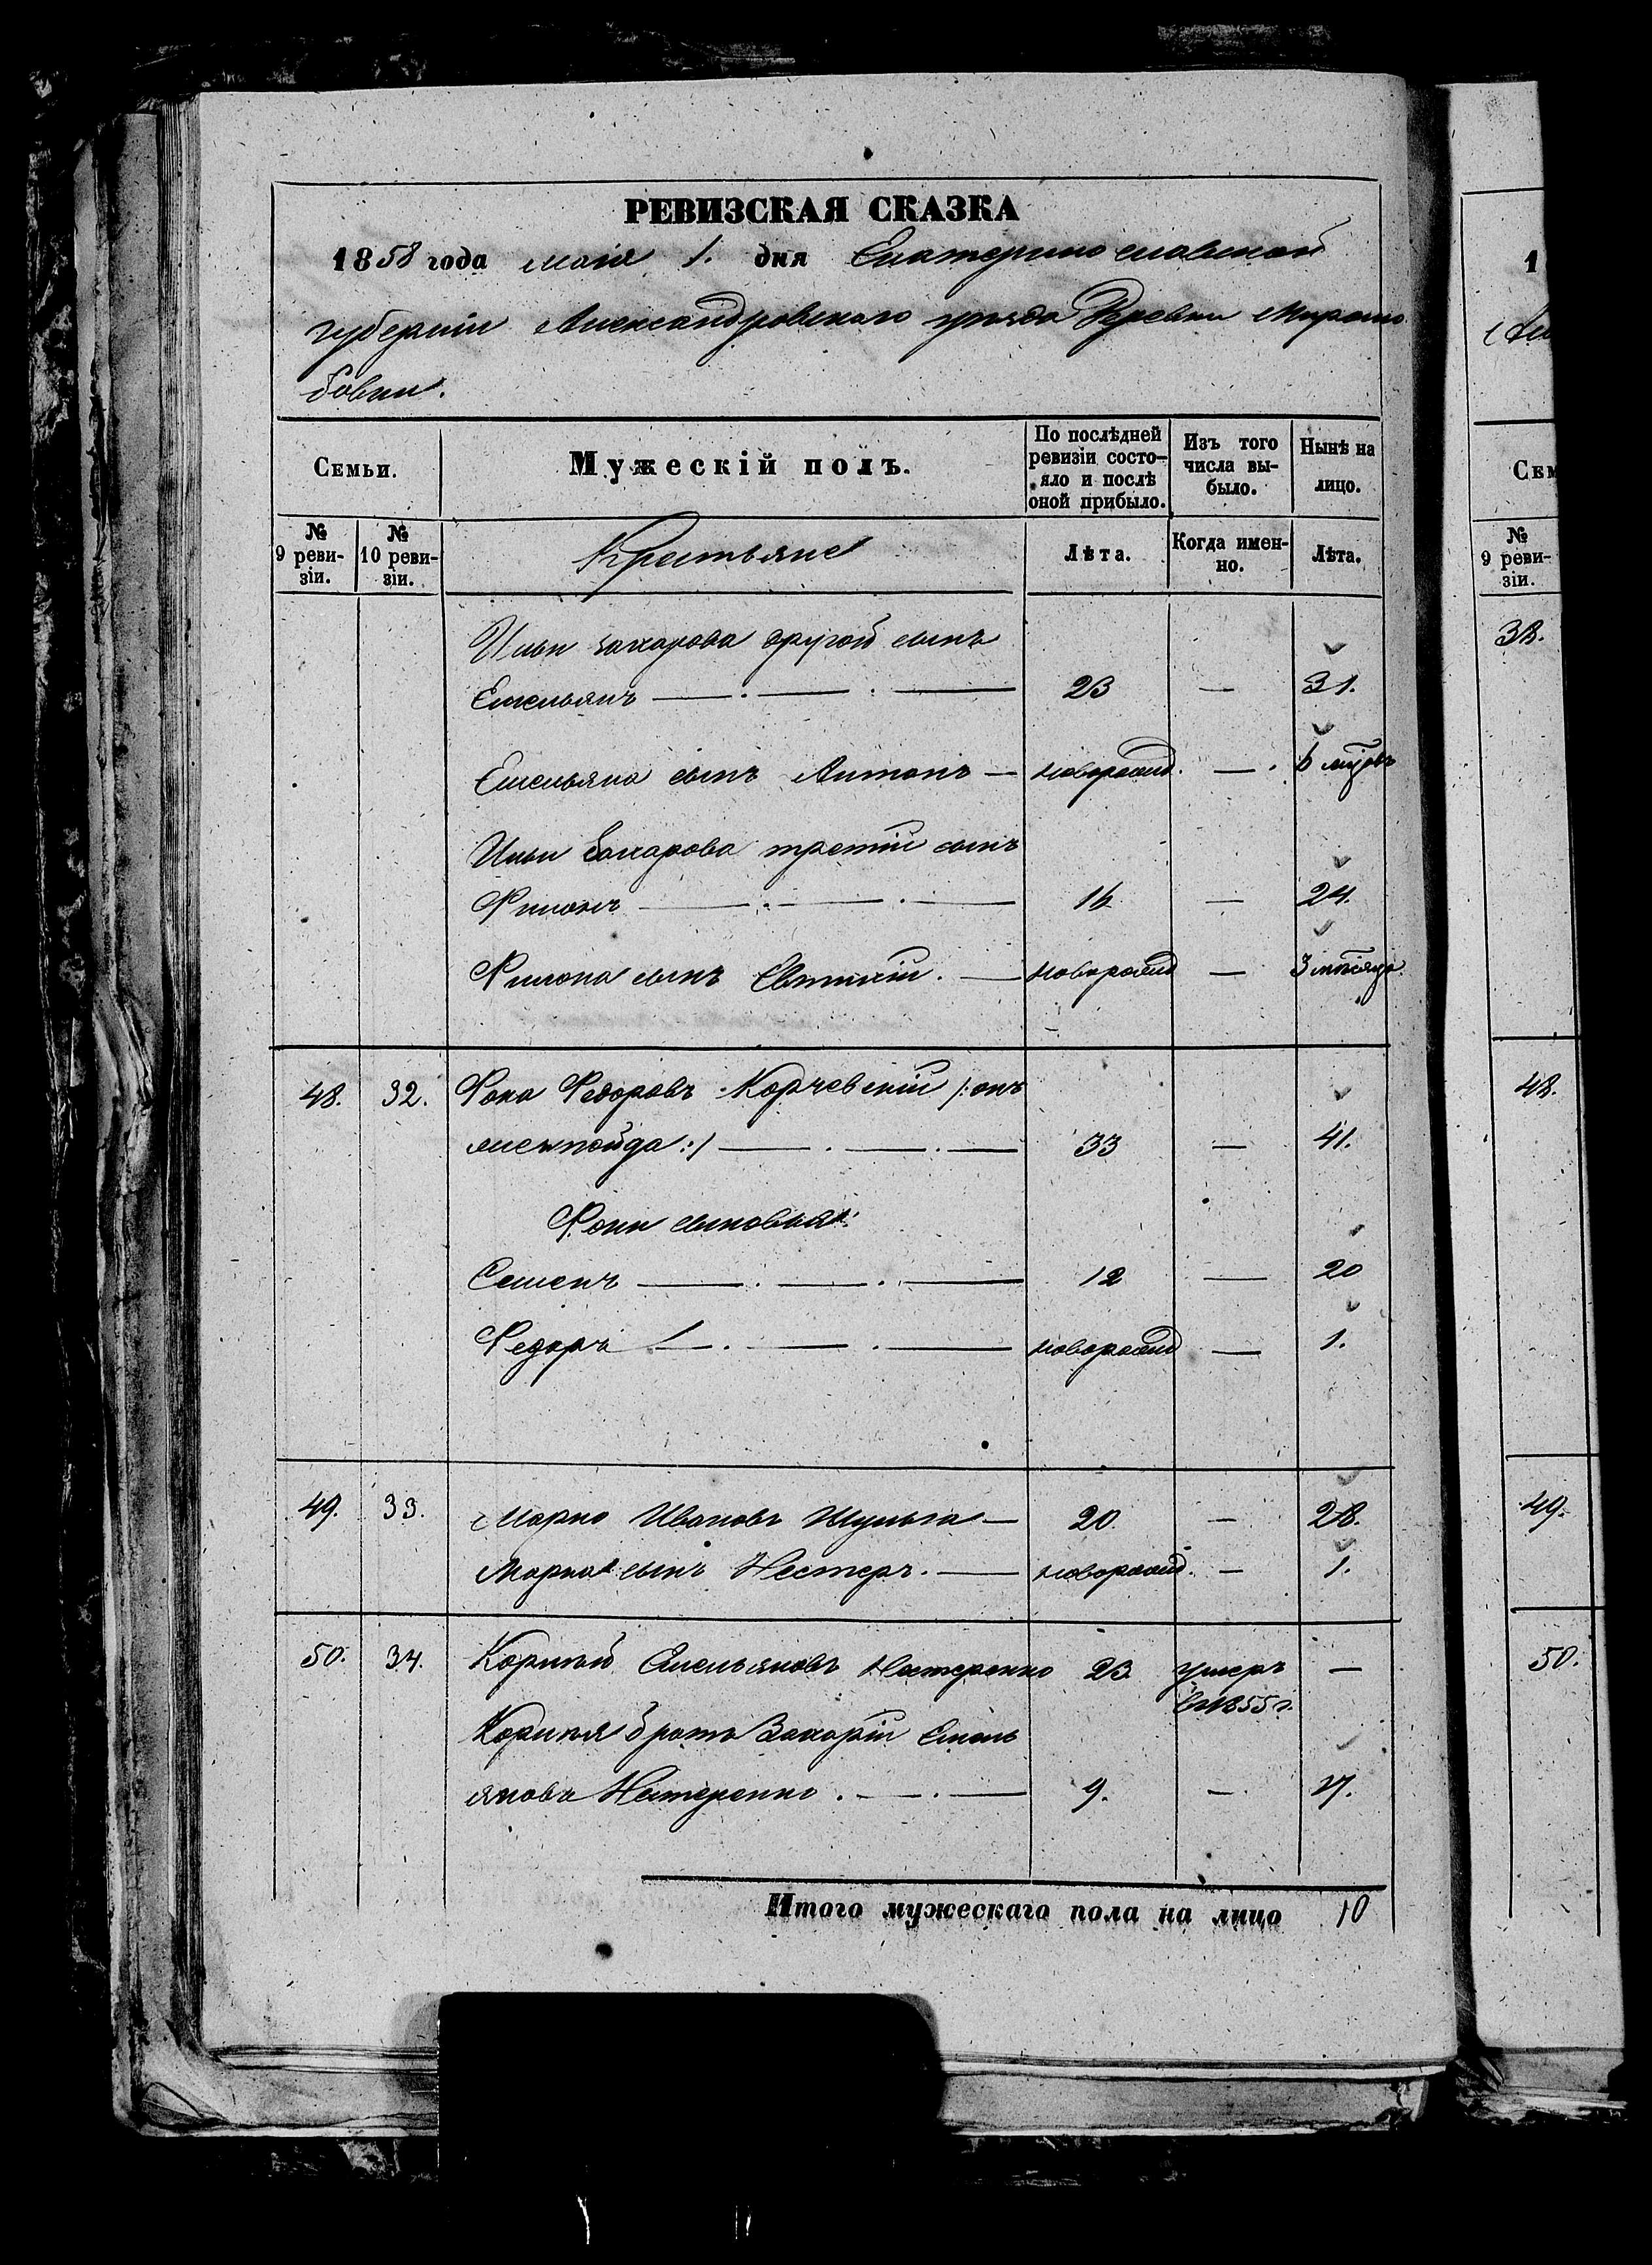 РЕВИЗСКАЯ СКАЗКА
1858 года маія 1. дня Екатеринославской
губерніи Александровскаго уѣзда Деревни Миролю
бовки.
Семьи.
Мужескій полъ.
По послѣдней ревизіи состояло и послѣ оной прибыло.
Изъ того числа выбыло.
Нынѣ на лицо.
№ 9 ревизіи.
№ 10 ревизіи.
Крестьяне
Лѣта.
Когда именно.
Лѣта.
Ильи Захарова другой сынъ
Емельянъ — . — . — 23 — 31.
Емельяна сынъ Антонъ — новорожд. — . 6 мѣцовъ
Ильи Захарова третій сынъ
Филонъ — . — . — 16 — 24.
Филона сынъ Евтихій. — новорожд — 3 мѣсяца.
48. 32. Фока Федоровъ Корчевскій /: онъ
же :/ — . — . — 33 — 41.
Фоки сыновья:
Семенъ — . — . — 12 — 20
Федоръ 1 — . — . — новорожд — 1.
49. 33. Марко Ивановъ Шульга — 20. — 28.
Марка сынъ Нестеръ. — новорожд. — 1.
50. 34. Корнѣй Емельяновъ Нестеренко 23 умеръ —
въ 1855 г.
Корнѣя братъ Захарій Емель
яновъ Нестеренко . — . — 9. — 17.
Итого мужескаго пола на лицо 10
1
Сем
№ 9 ревизіи.
38.
48.
49.
50.